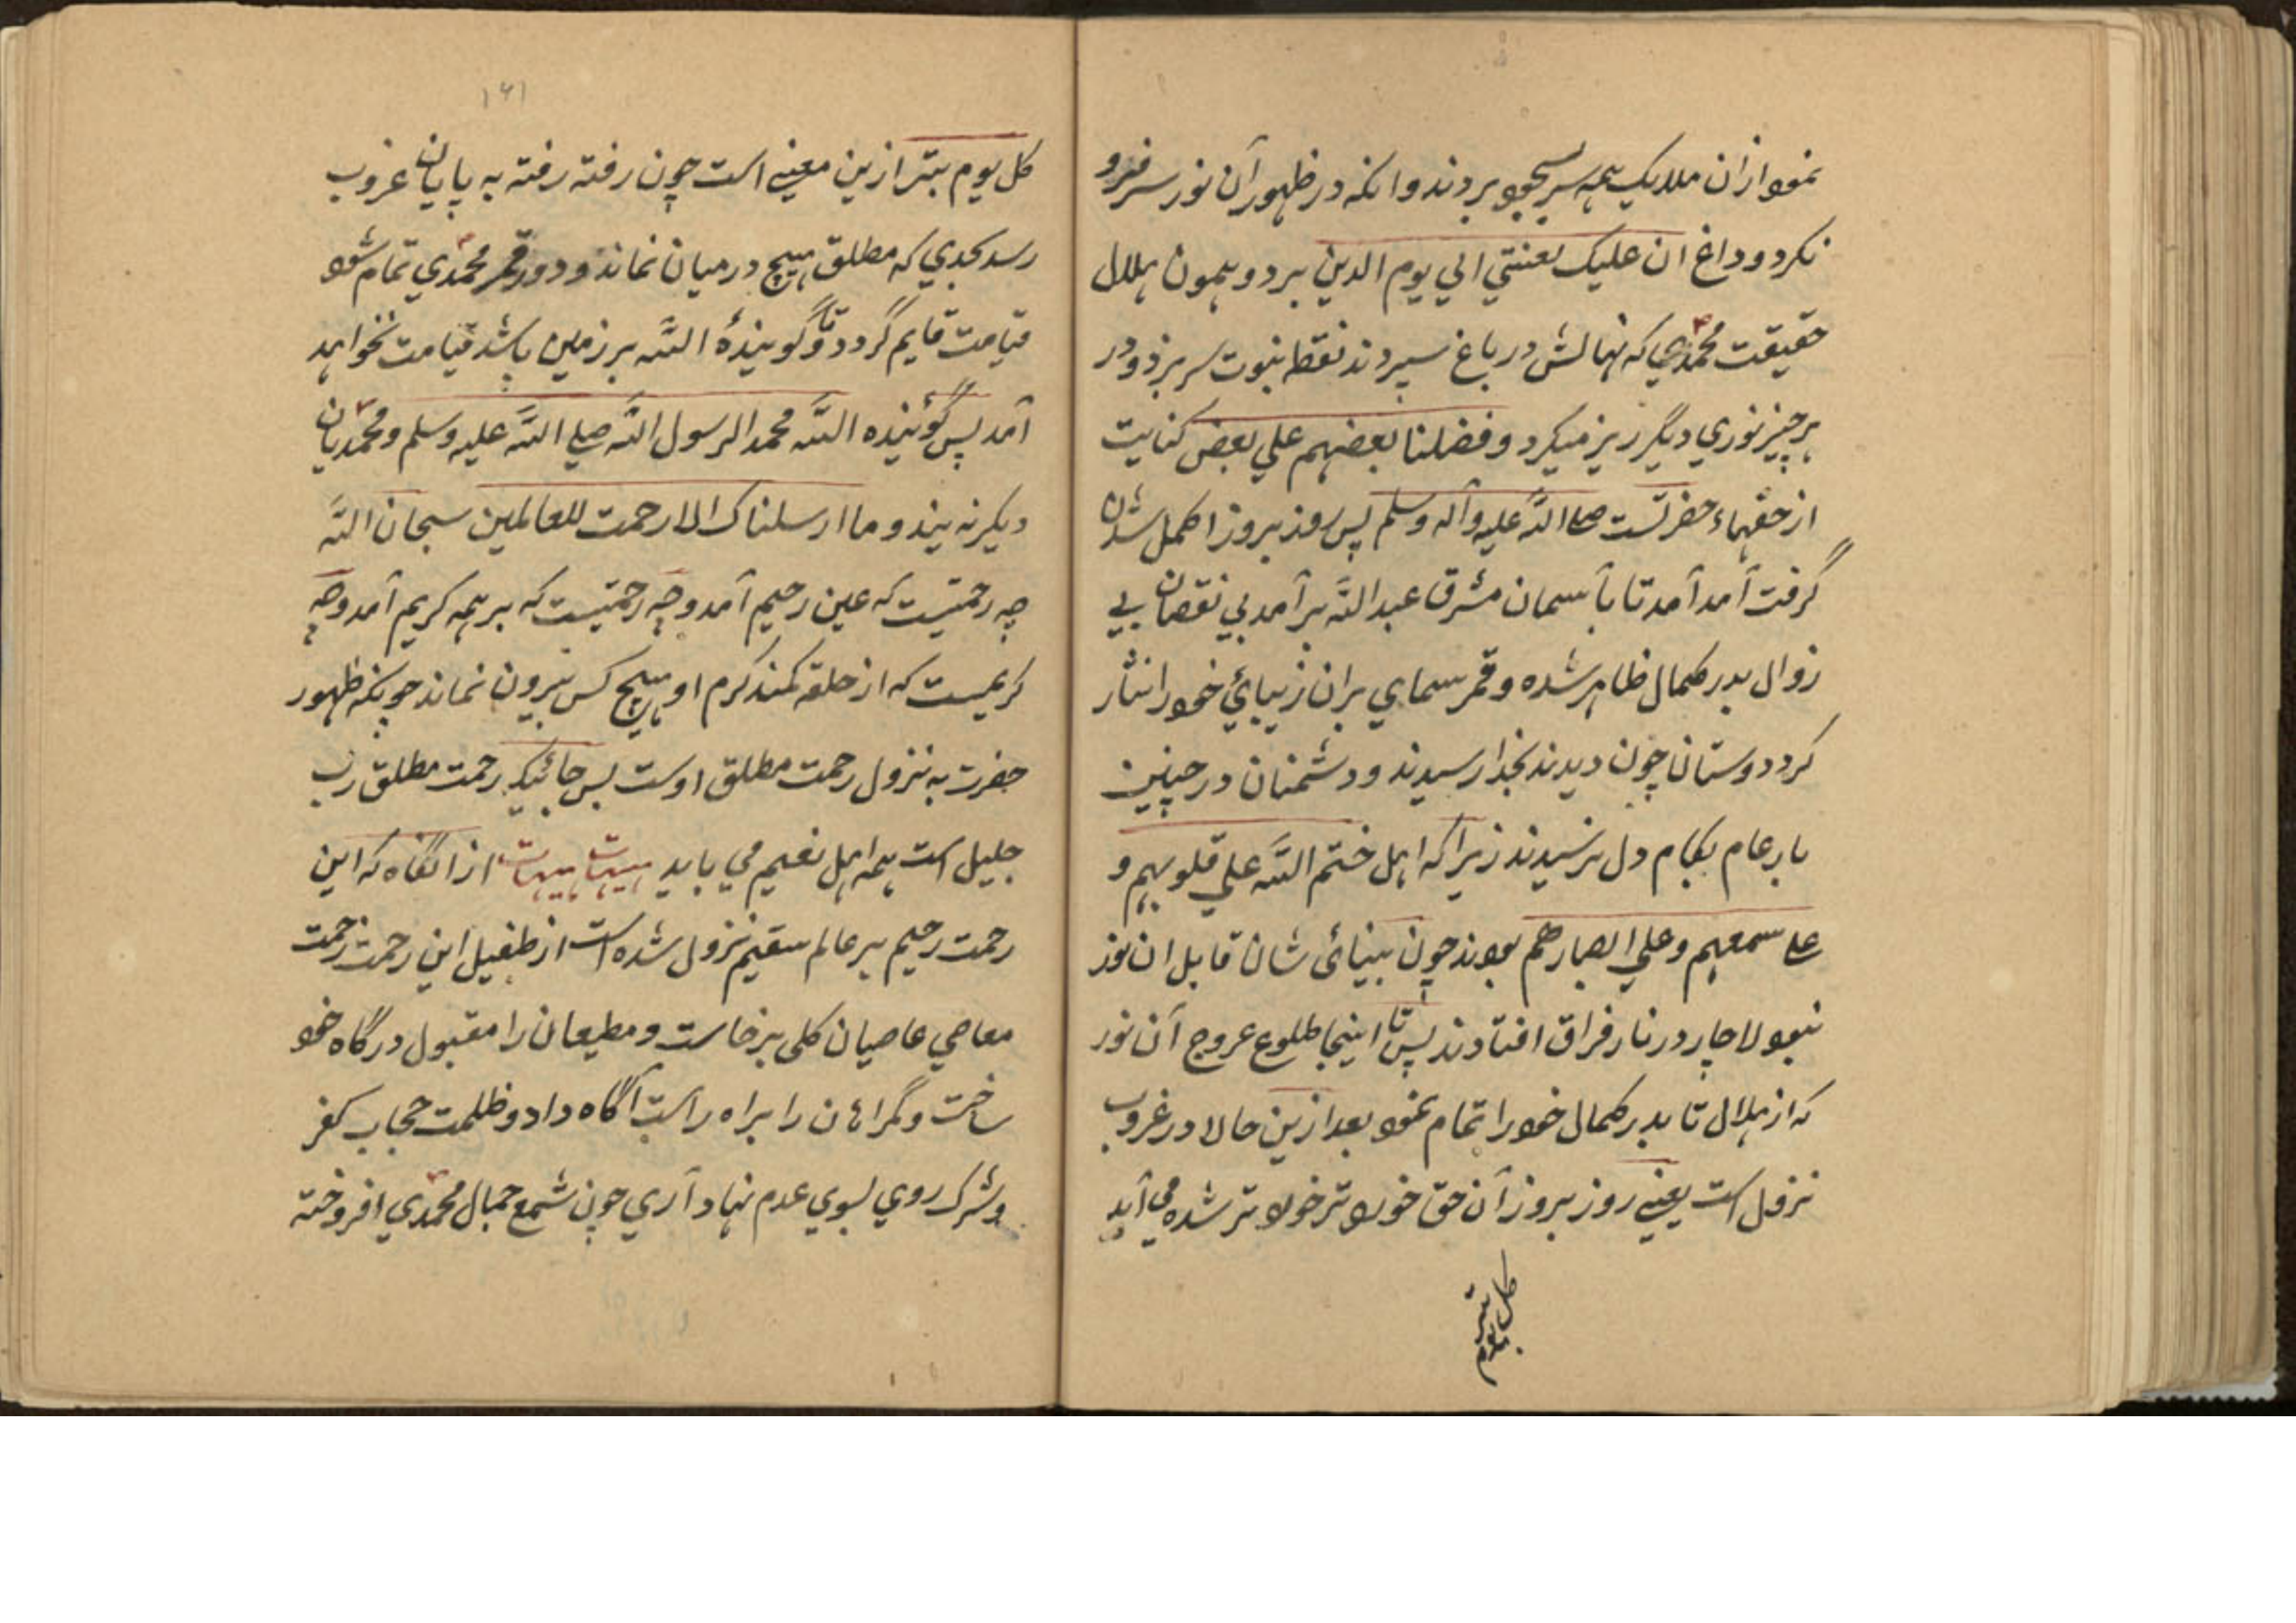 نمود ازان ملایک همه سر بسجود بردند وانکه در ظهور آن نور سر فرو
نکرد و داغ ان علیک لعنتي الي یوم الدین ببرد و همون هلال
حقیقت محمدي که نهالش در باغ سپردند نقطه نبوت سر بر زد و در
هر چیز نوري دیگر ریز میکرد و فضلنا بعضهم علي بعض کنایت
از حضرتست صلی الله علیه وآله وسلم پس روز بروز اکمل شدن
گرفت آمد آمد تا بآسمان مشرق عبدالله برآمد بي نقصان بي
زوال بدر کمال ظاهر شده و قمر سماي بران زیبائي خود را نثار
کرد دوستان چون دیدند بخدا رسیدند و دشمنان در چنین
بار عام بکام دل نرسیدند زیرا که اهل ختم الله علي قلوبهم و
علی سمعهم وعلي ابصارهم بودند چون بینائی شان قابل ان نور
نبود لاچار در نار فراق افتادند پس تا اینجا طلوع عروج آن نور
که از هلال تا بدر کمال خود را تمام نمود بعد ازین حالا در غروب
نزول است یعنے روز بروز آن حق خورد تر خورد تر شده مي آید
کل یوم بتر
۱۶۱
کل یوم بتر ازین معنے است چون رفته رفته به پایان غروب
رسد بحدي که مطلق هیچ درمیان نماند و دور قمر محمدي تمام شود
قیامت قایم گردد تا گویندهٔ الله بر زمین باشد قیامت نخواهد
آمد پس گوئینده الله محمد الرسول الله صلي الله علیه وسلم و محمدیان
دیگر نه بیند و ما ارسلناک الا رحمت للعالمین سبحان الله
چه رحمتیست که عین رحیم آمد و چه رحمتیست که بر همه کریم آمد و چه
کریمیست که از حلقه کمند کرم او هیچ کس بیرون نماند چونکه ظهور
حضرت به نزول رحمت مطلق اوست پس جائیکه رحمت مطلق رب
جلیل است همه اهل نعیم مي باید هیهات هیهات ازانگاه که این
رحمت رحیم بر عالم سقیم نزول شده است از طفیل این رحمت زحمت
معاصي عاصیان کلی برخاست و مطیعان را مقبول درگاه خود
ساخت و گمراهان را براه راست آگاه داد و ظلمت حجاب کفر
و شرک روي بسوي عدم نهاد آري چون شمع جمال محمدي افروخته